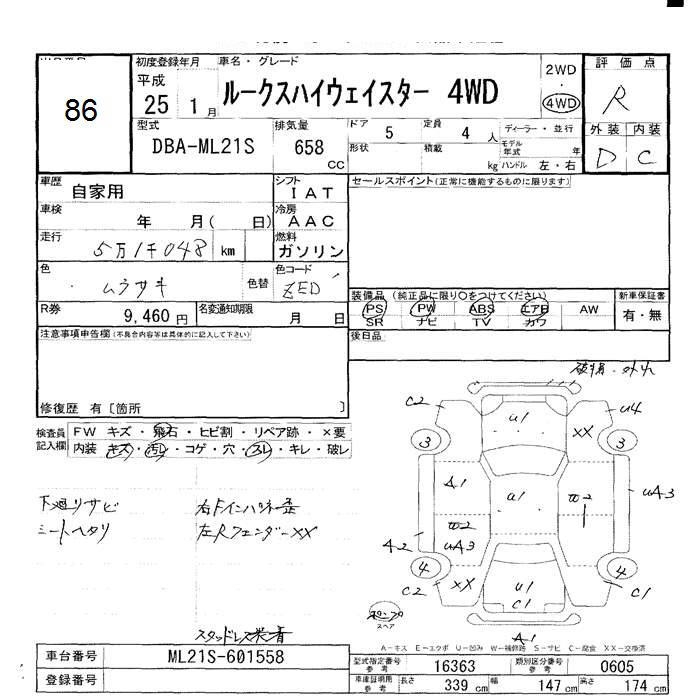 初度登録年月 車名・グレード
86 平成 25 1月 ルークスハイウェイスター 4WD 2WD・4WD 評価点 R
型式 排気量 ドア 5 定員 4人 ディーラー・並行 外装 内装
DBA-ML21S 658 CC 形状 積載 kg モデル年式 年 D C
ハンドル 左・右
車歴 自家用 シフト IAT セールスポイント(正常に機能するものに限ります)
車検 年 月( 日) 冷房 AAC
走行 5万1千048 km 燃料 ガソリン
色 ムラサキ 色替 色コード ZED
R券 9,460円 名変通知期限 月 日
装備品(純正品に限り○をつけてください) 新車保証書
PS PW ABS エアB AW 有・無
SR ナビ TV カワ
注意事項申告欄(不具合内容等は具体的に記入して下さい) 後日品
修復歴 有〔箇所 〕
検査員記入欄 FW キズ・飛石・ヒビ割・リペア跡・×要
内装 キズ・汚レ・コゲ・穴・スレ・キレ・破レ
下廻りサビ 右Fインパネ歪
シートヘタリ 左Rフェンダーxx
スタッドレス装着
破損・外れ
C2 U1 U4
XX
3 3
A1 U1 W2 UA3
W2
A2 UA3
4 4
C2 XX U1 C1
C1
A1
スペア
A-キズ E-エクボ U-凹み W-補修跡 S-サビ C-腐食 XX-交換済
車台番号 ML21S-601558 型式指定番号 参考 16363 類別区分番号 参考 0605
登録番号 車庫証明用 参考 長さ 339 cm 幅 147 cm 高さ 174 cm